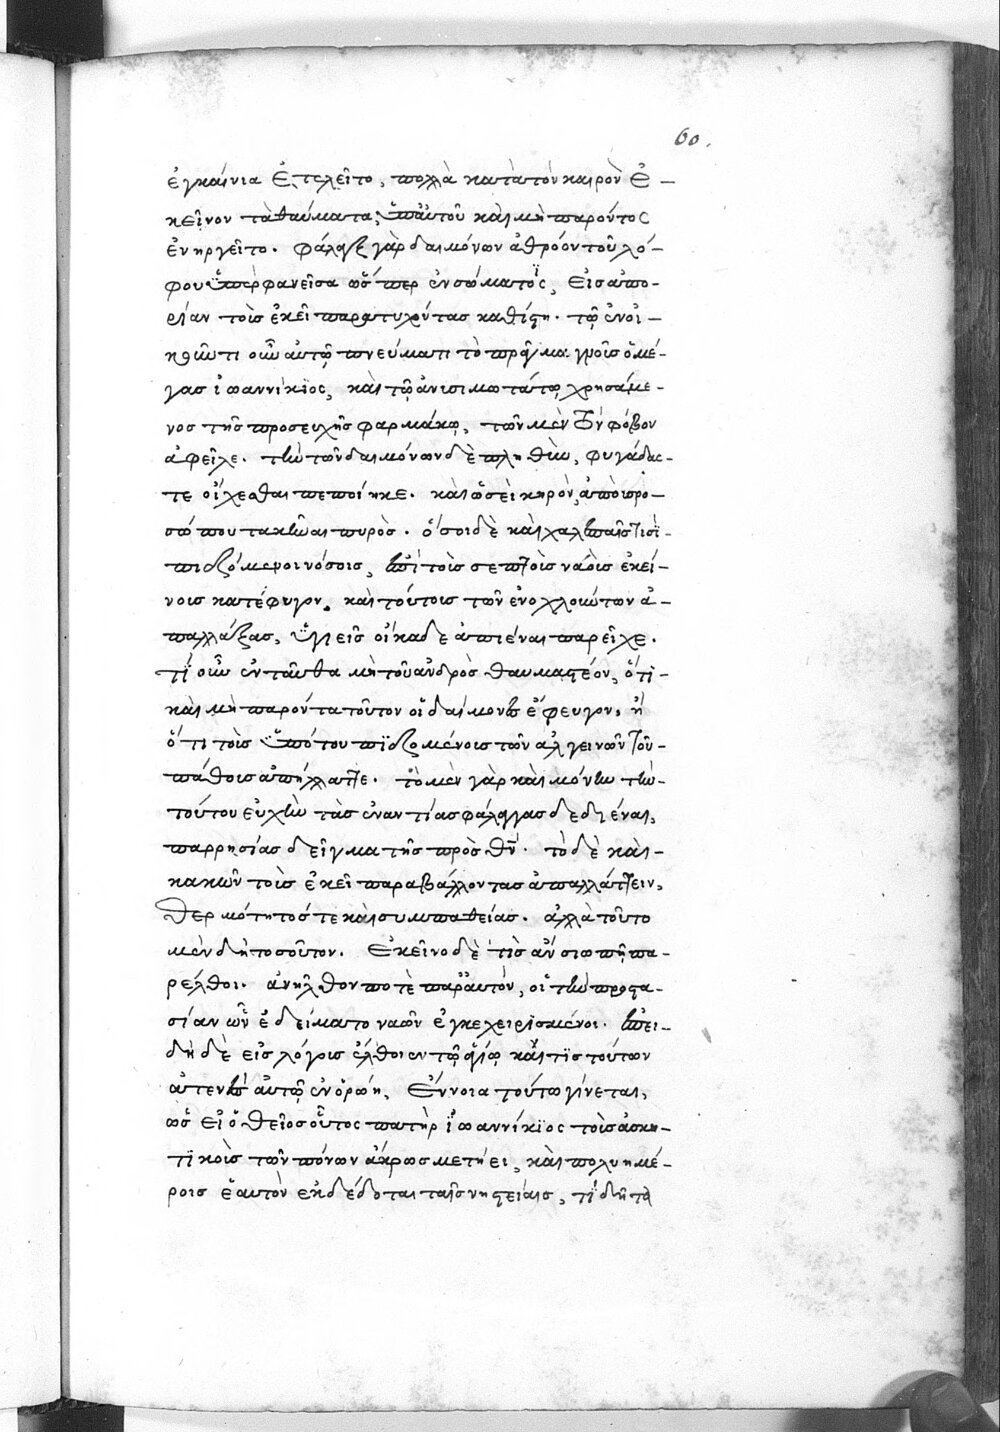 60.
ἐγκαίνια ἐτελεῖτο, πολλὰ κατὰ τὸν καιρὸν ἐ-
κεῖνον τὰ θαύματα, ὑπ' αὐτοῦ καὶ μὴ παρόντος
ἐνηργεῖτο. φάλαγξ γὰρ δαιμόνων ἀθρόον τοῦ λό-
φου ὑπερφανεῖσα ὥσπερ ἐν σώματος, εἰς ἀπο-
ρίαν τοὺς ἐκεῖ παρατυχόντας καθίστη. τῶ ἐνοι-
κοῦντι οὖν αὐτῶ πνεύματι τὸ πρᾶγμα γνοὺς ὁ μέ-
γας ἰωαννίκιος, καὶ τῶ ἀνυσιμωτάτω χρησάμε-
νος τῆς προσευχῆς φαρμάκω, τῶν μὲν τὸν φόβον
ἀφεῖλε. τὴν τῶν δαιμόνων δὲ πληθὺν, φυγάδας
τε οἴχεσθαι πεποίηκε. καὶ ὡσεὶ κηρὸν, ἀπὸ προ-
σώπου τακῆναι πυρὸς. ὅσοι δὲ καὶ χαλεπαῖς τισὶ
πιεζόμενοι νόσοις, ἐπὶ τοῖς σεπτοῖς ναοῖς ἐκεί-
νοις κατέφυγον, καὶ τούτοις τῶν ἐνοχλούντων ἀ-
παλλάξας, ὑγιεῖς οἴκαδε ἀπιέναι παρεῖχε.
τί οὖν ἐνταῦθα μὴ τοῦ ἀνδρὸς θαυμαστέον, ὅτι
καὶ μὴ παρόντα τοῦτον οἱ δαίμονες ἔφευγον, ἢ
ὅτι τοῖς ὑπό του πιεζομένοις τῶν ἀλγεινῶν τοῦ
πάθοις ἀπήλλαττε. τὸ μὲν γὰρ καὶ μόνην τὴν
τούτου εὐχὴν τὰς ἐναντίας φάλαγγας δεδιέναι,
παρρησίας δεῖγμα τῆς πρὸς θν. τὸ δὲ καὶ
κακῶν τοὺς ἐκεῖ παραβάλλοντας ἀπαλλάττειν,
θερμότητός τε καὶ συμπαθείας. ἀλλὰ τοῦτο
μὲν δὴ τοσοῦτον. ἐκεῖνο δὲ τίς ἂν σιωπῇ πα-
ρέλθοι. ἀνῆλθον ποτὲ παρ' αὐτὸν, οἱ τὴν προστα-
σίαν ὧν ἐδείματο ναῶν ἐγκεχειρισμένοι. ἐπει-
δὴ δὲ εἰς λόγους ἔλθοιεν τῶ ἁγίω, καί τις τούτων
ἀτενὲς αὐτῶ ἐνορώη, ἔννοια τούτω γίνεται,
ὡς εἰ ὁ θεῖος οὗτος πατὴρ ἰωαννίκιος τοὺς ἀσκη-
τικοὺς τῶν πόνων ἄκρως μετήει, καὶ πολυημέ-
ροις ἑαυτὸν ἐκδέδοται ταῖς νηστείαις, τί δήτα